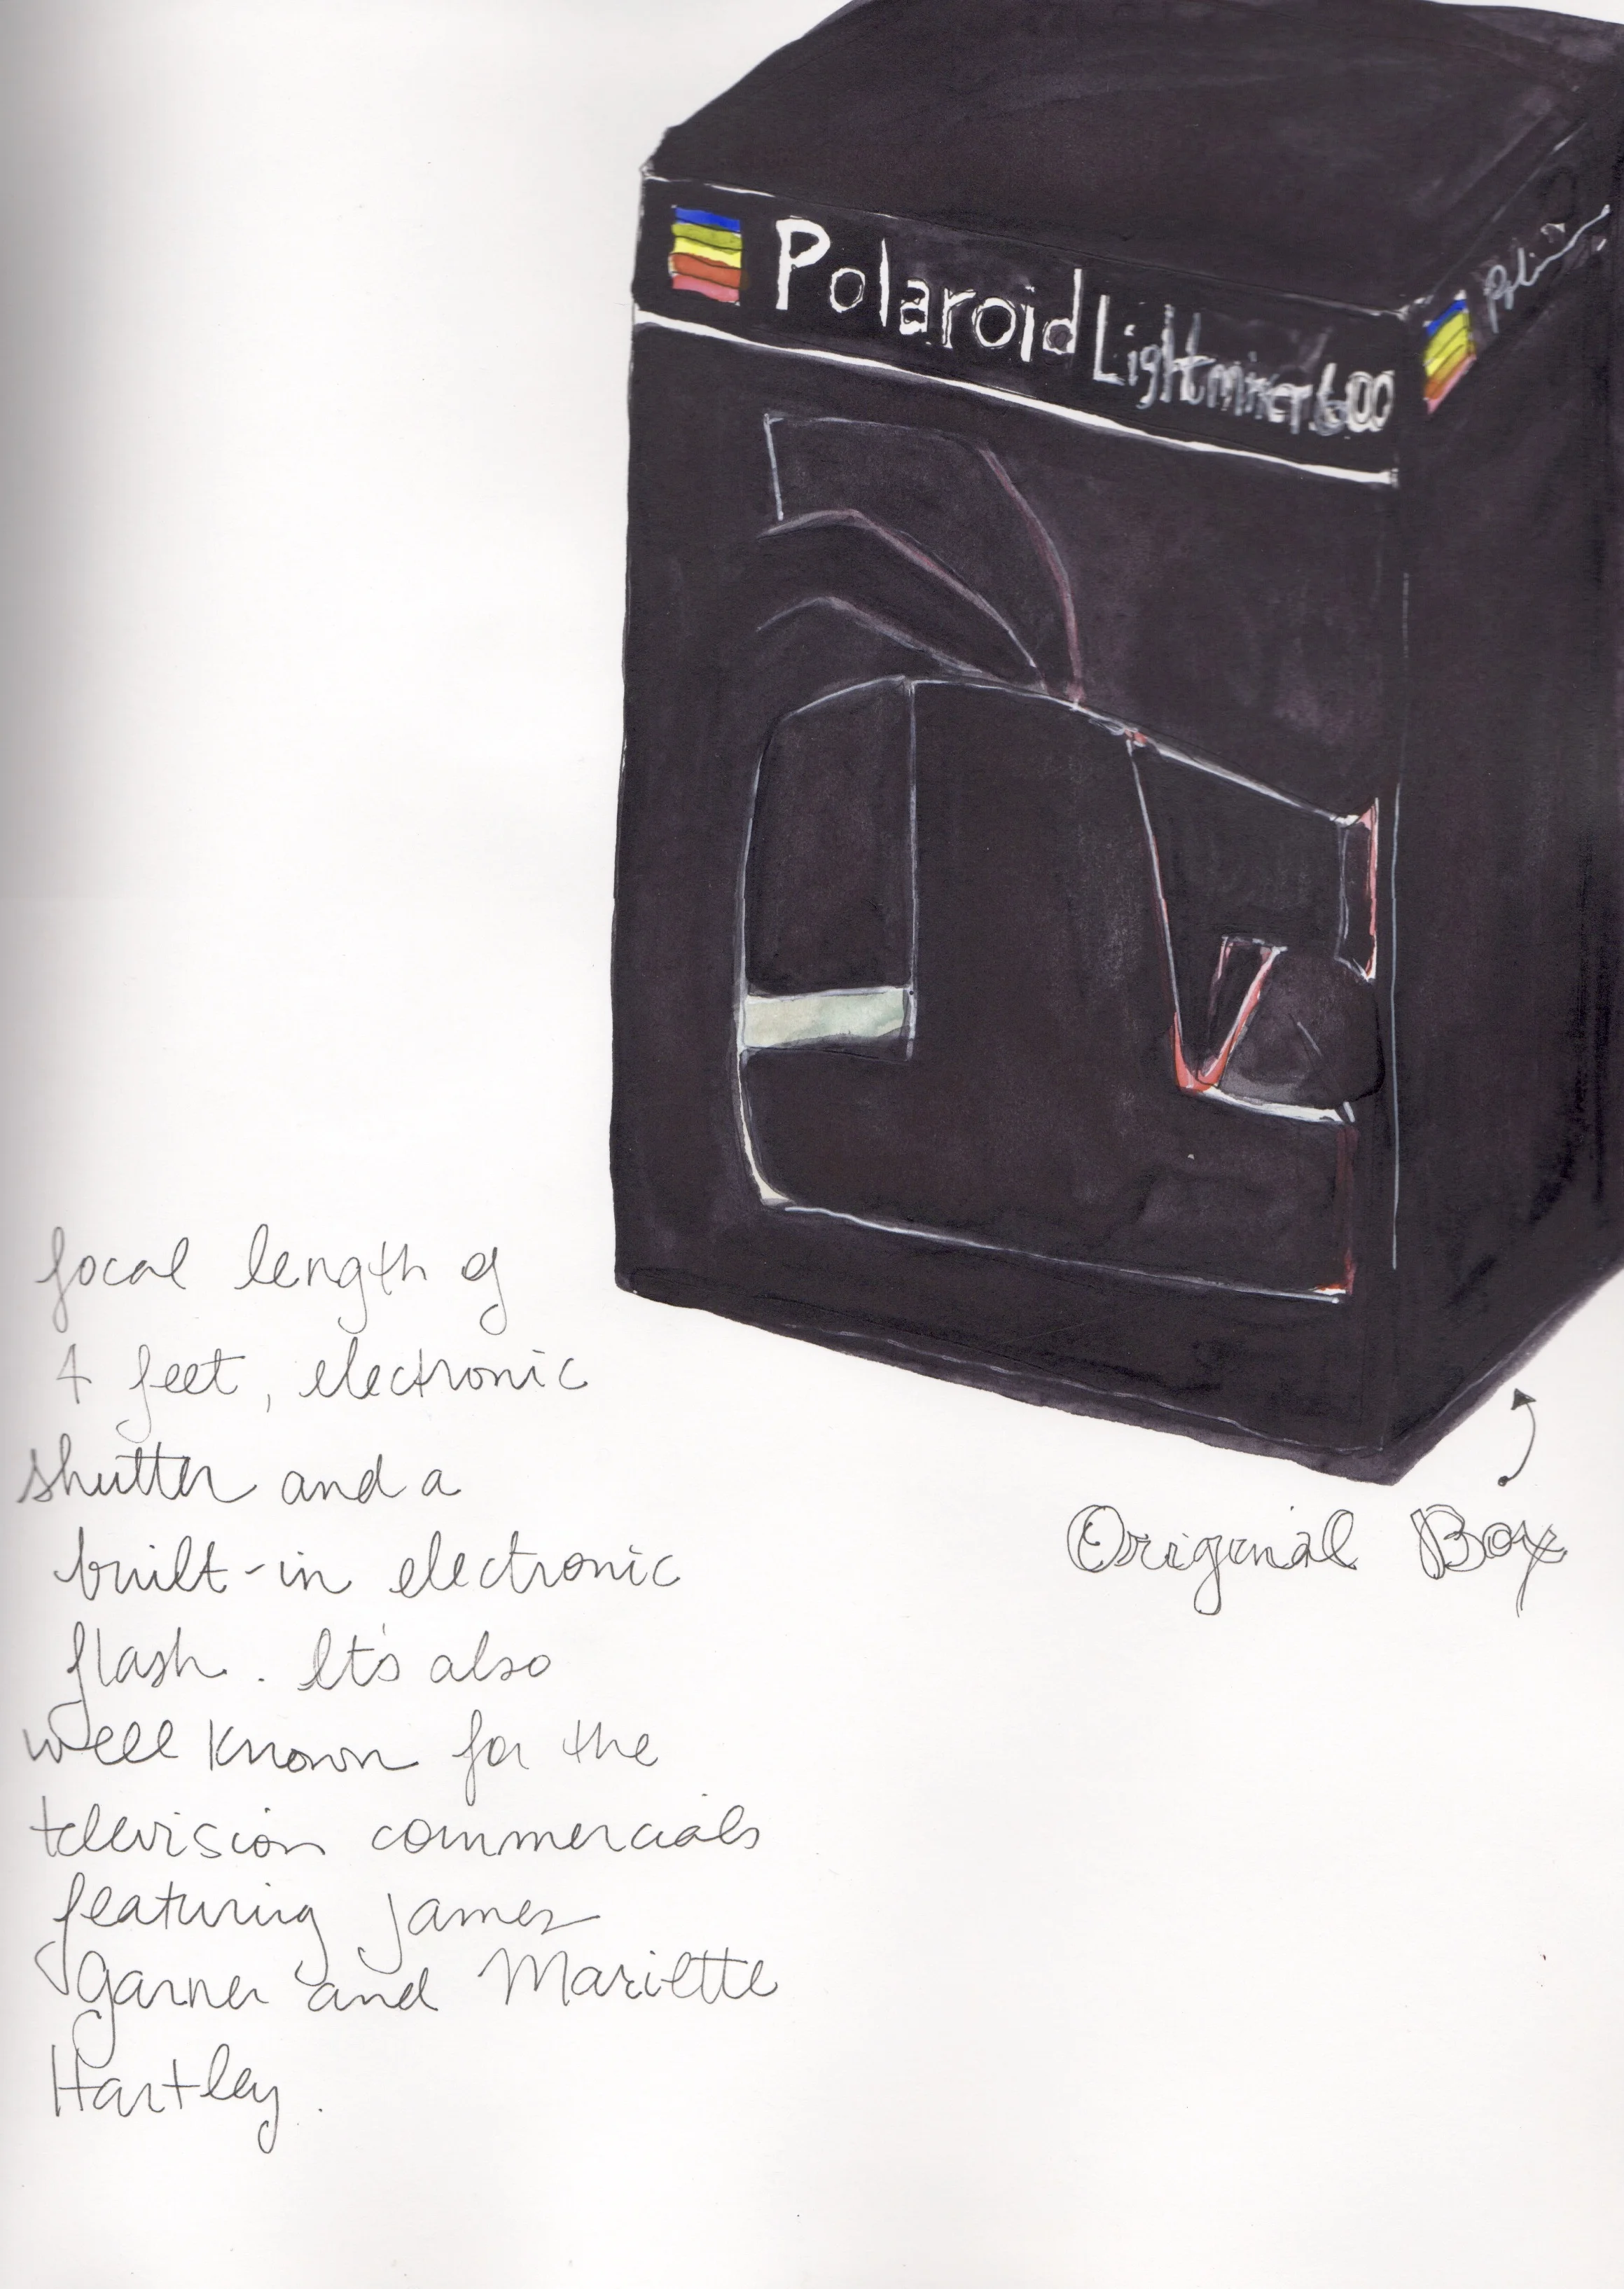 Polaroid Lightmixer 600
focal length of
4 feet, electronic
shutter and a
built-in electronic
flash. It's also
well known for the
television commercials
featuring James
Garner and Mariette
Hartley.
Original Box